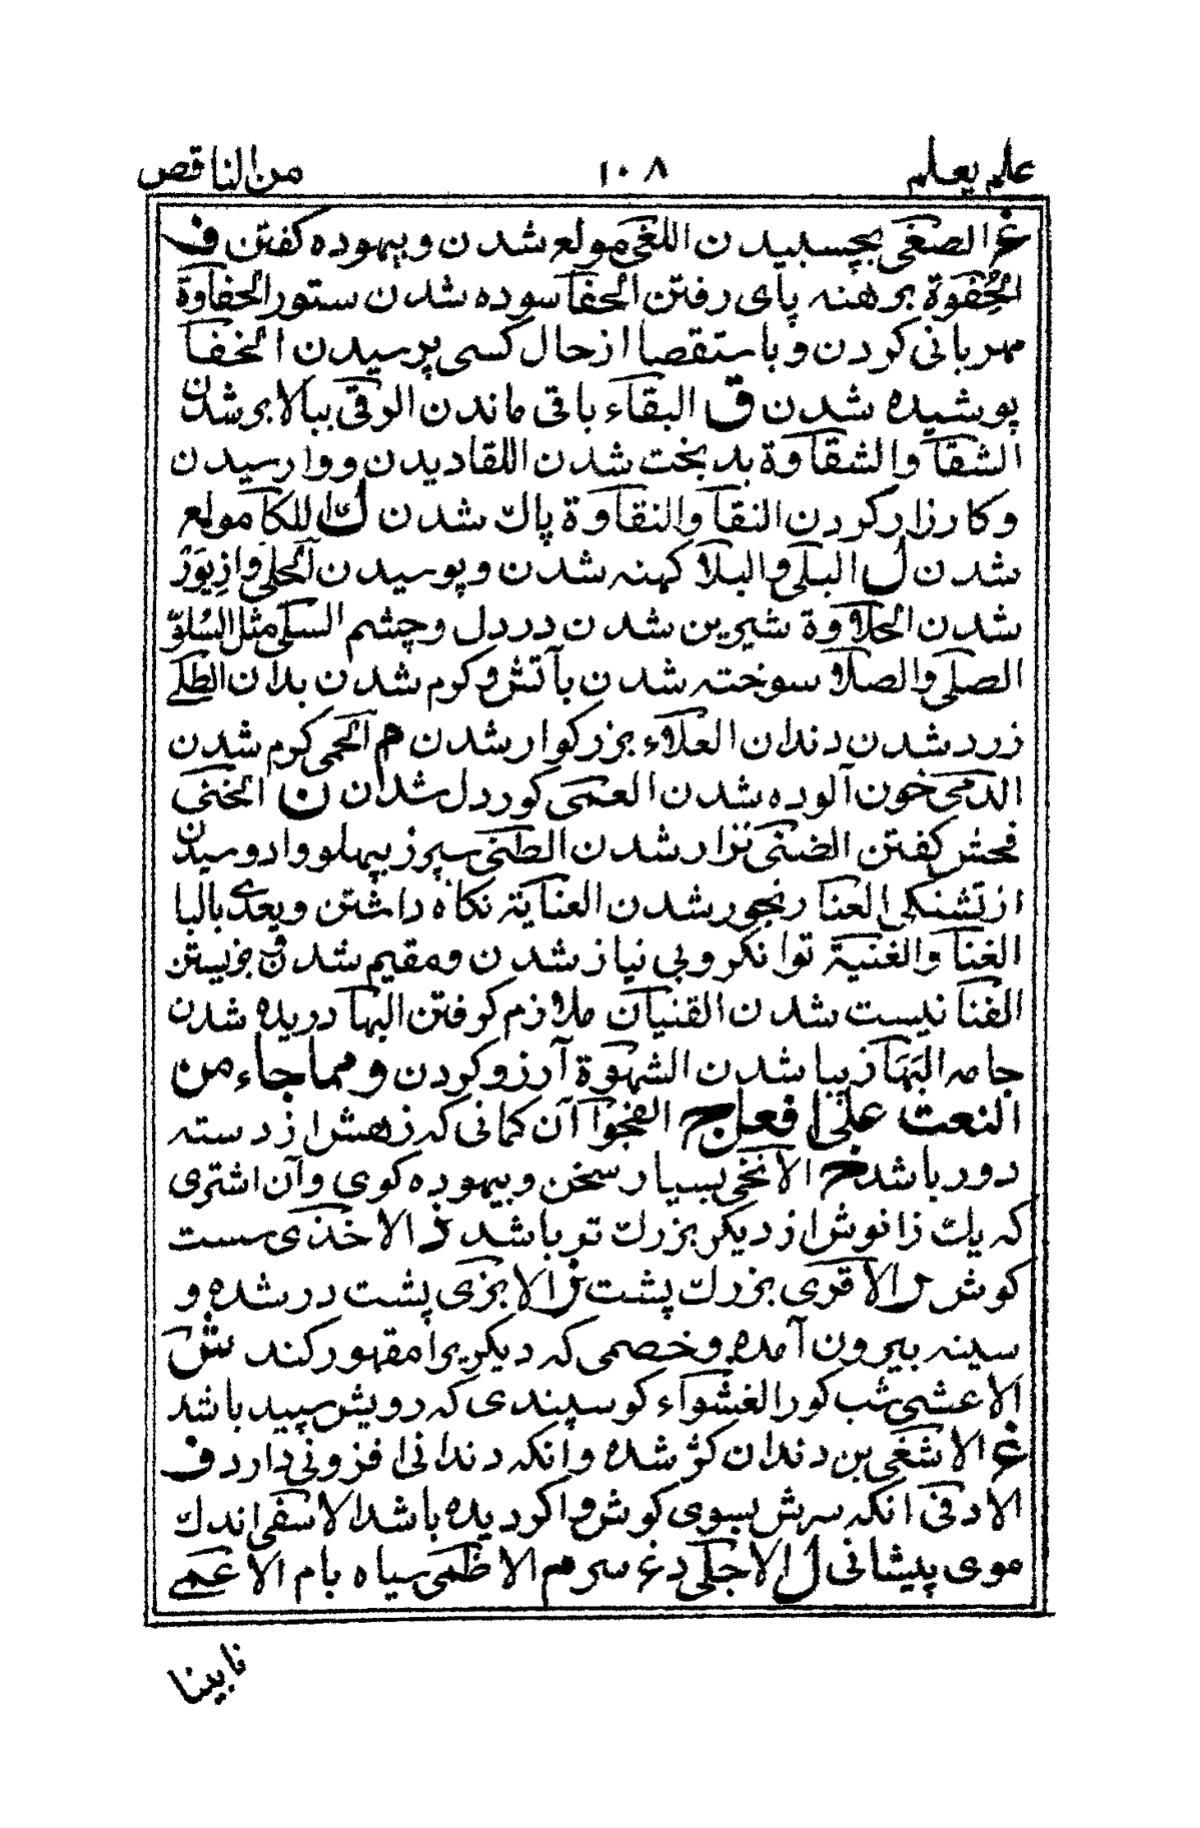 علم يعلم ١٠٨ من الناقص
غ الصغى بچسبيدن اللغى مولع شدن وبيهوده كفتن ف
الحُفوة برهنه پاى رفتن الحفا سوده شدن ستور الحفاوة
مهربانى كردن وباستقصا از حال كسى پرسيدن الخفا
پوشيده شدن ق البقاء باقى ماندن الرقى ببالا برشدن
الشقا والشقاوة بدبخت شدن اللقا ديدن ووارسيدن
وكارزار كردن النقا والنقاوة پاك شدن ك اللكا مولع
شدن ل البلى والبلا كهنه شدن وپوسيدن الحلى وازيور
شدن الحلاوة شيرين شدن در دل وچشم السلى مثل السلو
الصلى والصلا سوخته شدن بآتش وكرم شدن بدان الطلى
زرد شدن دندان العلاء بزركوار شدن م الحمى كرم شدن
الدمى خون آلوده شدن العمى كوردل شدن ن الخنى
فحش كفتن الضنى نزار شدن الطنى سپرز بپهلو وادوسيدن
از تشنكى العنا رنجور شدن العناية نكاه داشتن ويعدى بالبا
الغنا والغنية توانكر وبى نياز شدن ومقيم شدن وزيستن
الفنا نيست شدن القنيان ملازم كوفتن البها دريده شدن
جامه البَهَا زيبا شدن الشهوة آرزو كردن ومما جاء من
النعت على افعل ج الفجوا آن كمانى كه زهش از دسته
دور باشد خ الانخى بسيار سخن وبيهوده كوى وآن اشترى
كه يك زانوش از ديكر بزرك تر باشد ذ الاخذى سست
كوش ر الاقرى بزرك پشت ز الابزى پشت درشده و
سينه بيرون آمده وخصمى كه ديكريرا مقهور كند ش
الاعشى شب كور الغشواء كوسپندى كه رويش سپيد باشد
غ الاشغى بن دندان كژ شده وانكه دندانى افزونى دارد ف
الادفى انكه سرش بسوى كوش واكرديده باشد الاسفى اندك
موى پيشانى ل الاجلى دغ سر م الاظمى سياه بام الاعمى
نابينا